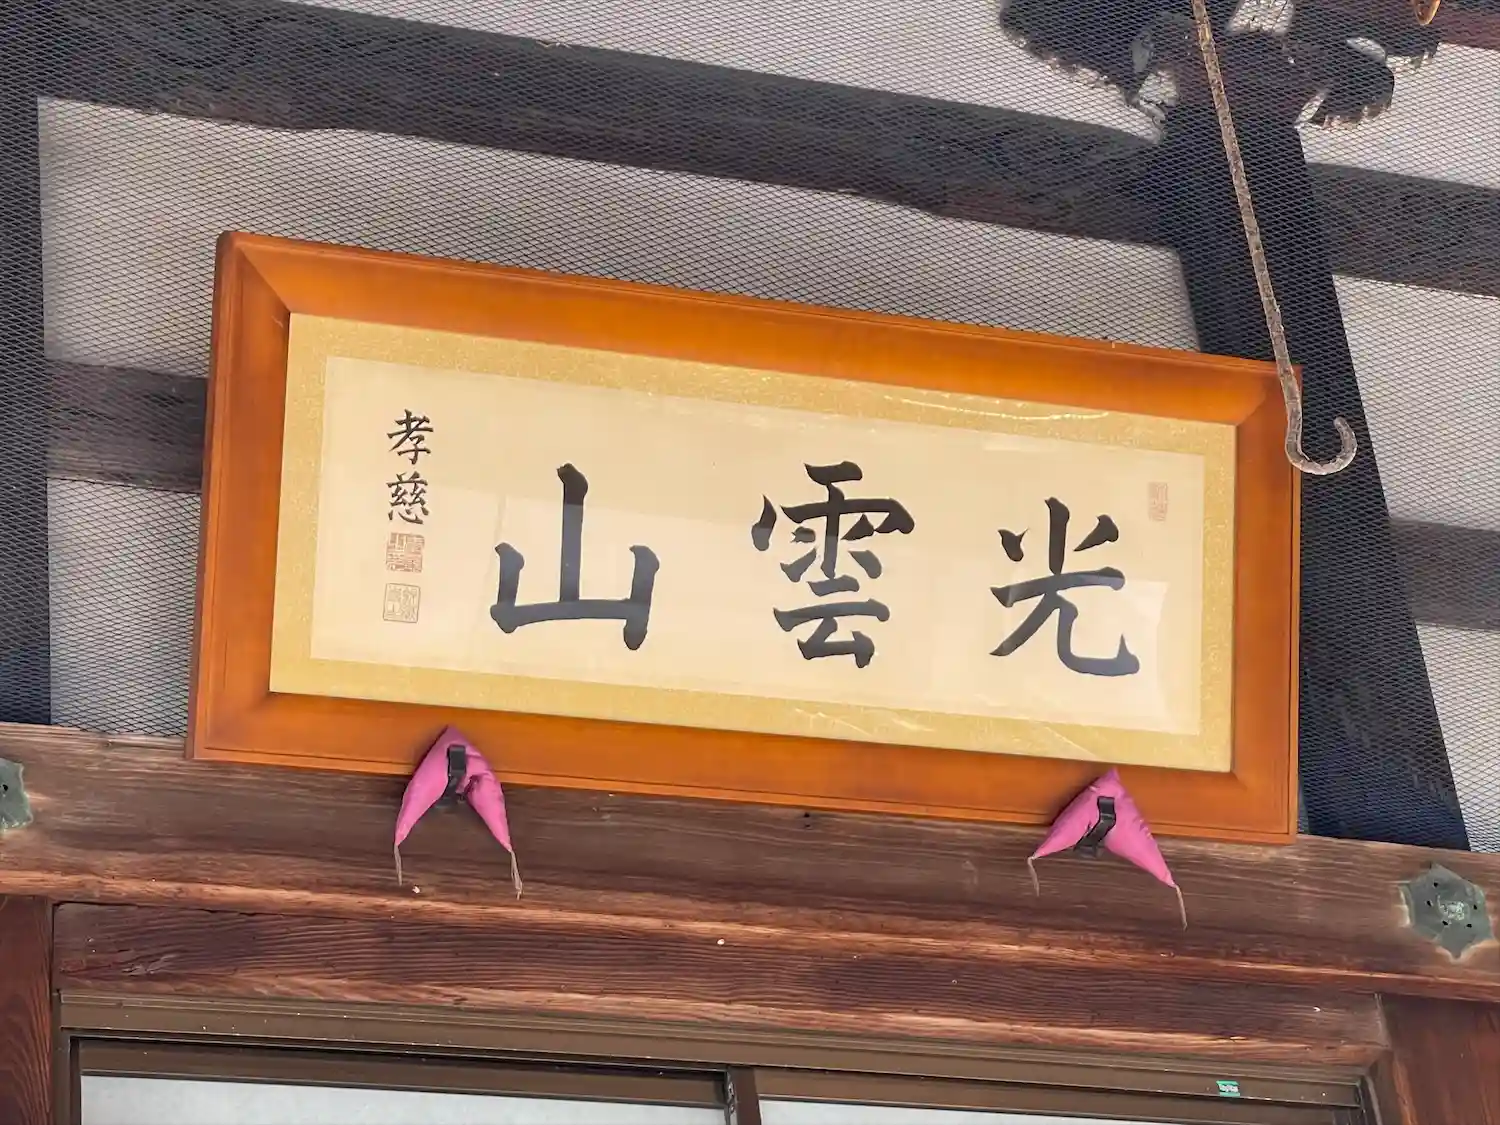 光雲山
孝慈